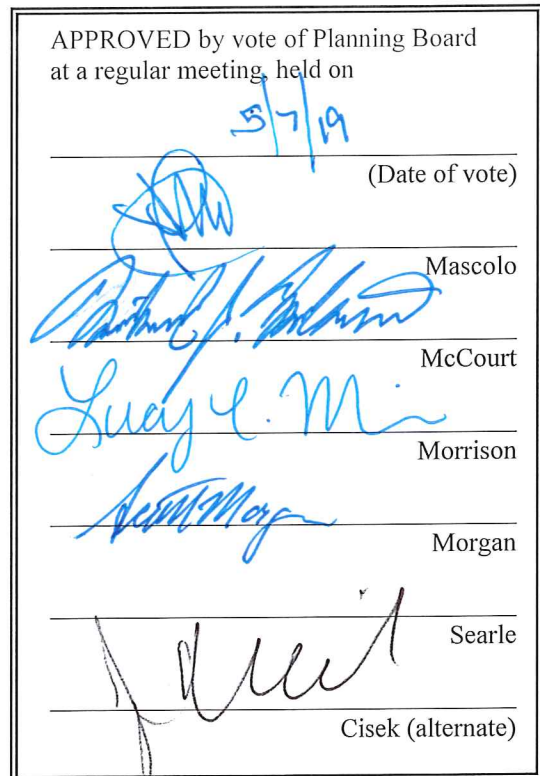 APPROVED by vote of Planning Board
at a regular meeting, held on
5/7/19
(Date of vote)
Mascolo
McCourt
Lucy E. M
Morrison
Scott Morgan
Morgan
Searle
Cisek (alternate)